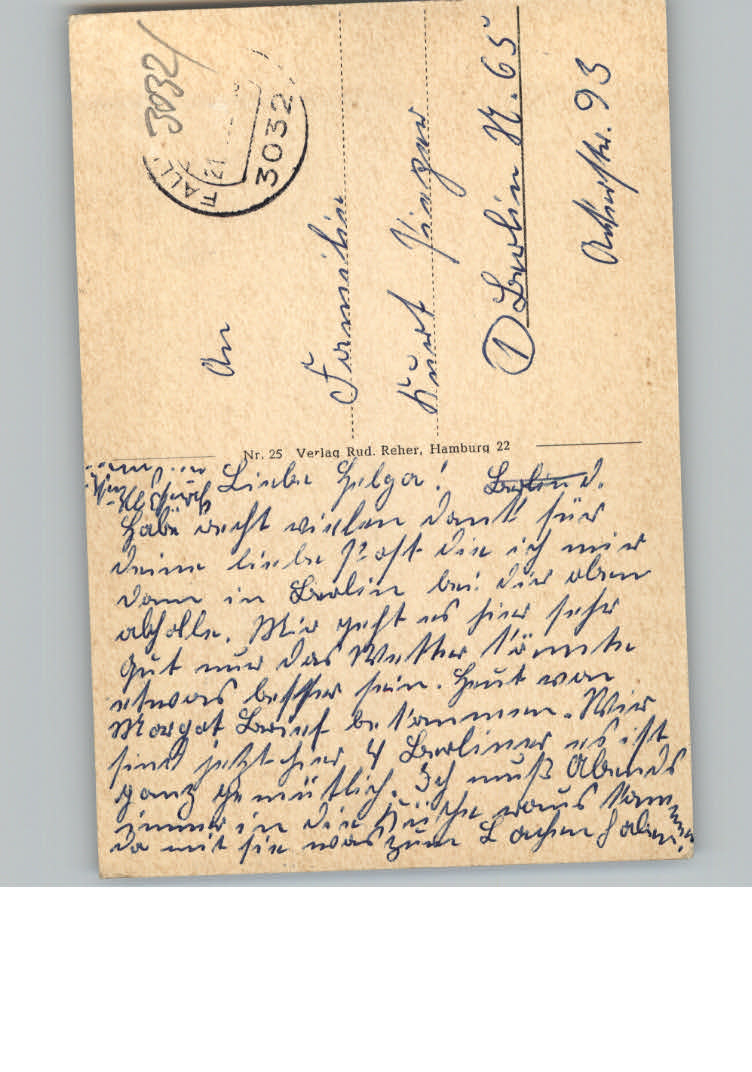 3032
FALL
21
3032
An
Familie
Kurt
① Berlin N. 65
Ackerstr. 93
Nr. 25 Verlag Rud. Reher, Hamburg 22
Liebe Helga! Berlin d.
Habe recht vielen Dank für
deine liebe Post die ich mir
dann in Berlin bei dir oben
abholle. Mir geht es hier sehr
gut nur das Wetter könnte
etwas besser sein. Heut von
Margot Brief bekommen. Wir
sind jetzt hier 4 Berliner es ist
ganz gemütlich. Ich muß Abends
immer in die Küche raus kommen
da mit sie was zum Lachen haben.